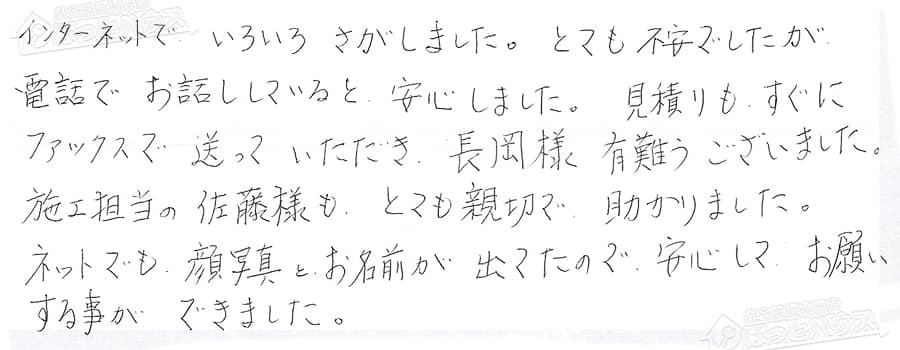 インターネットで いろいろ さがしました。 とても 不安でしたが
電話で お話ししていると 安心しました。 見積りも すぐに
ファックスで 送って いただき 長岡様 有難う ございました。
施工担当の 佐藤様も とても 親切で 助かりました。
ネットでも 顔写真と お名前が 出てたので 安心して お願い
する事が できました。